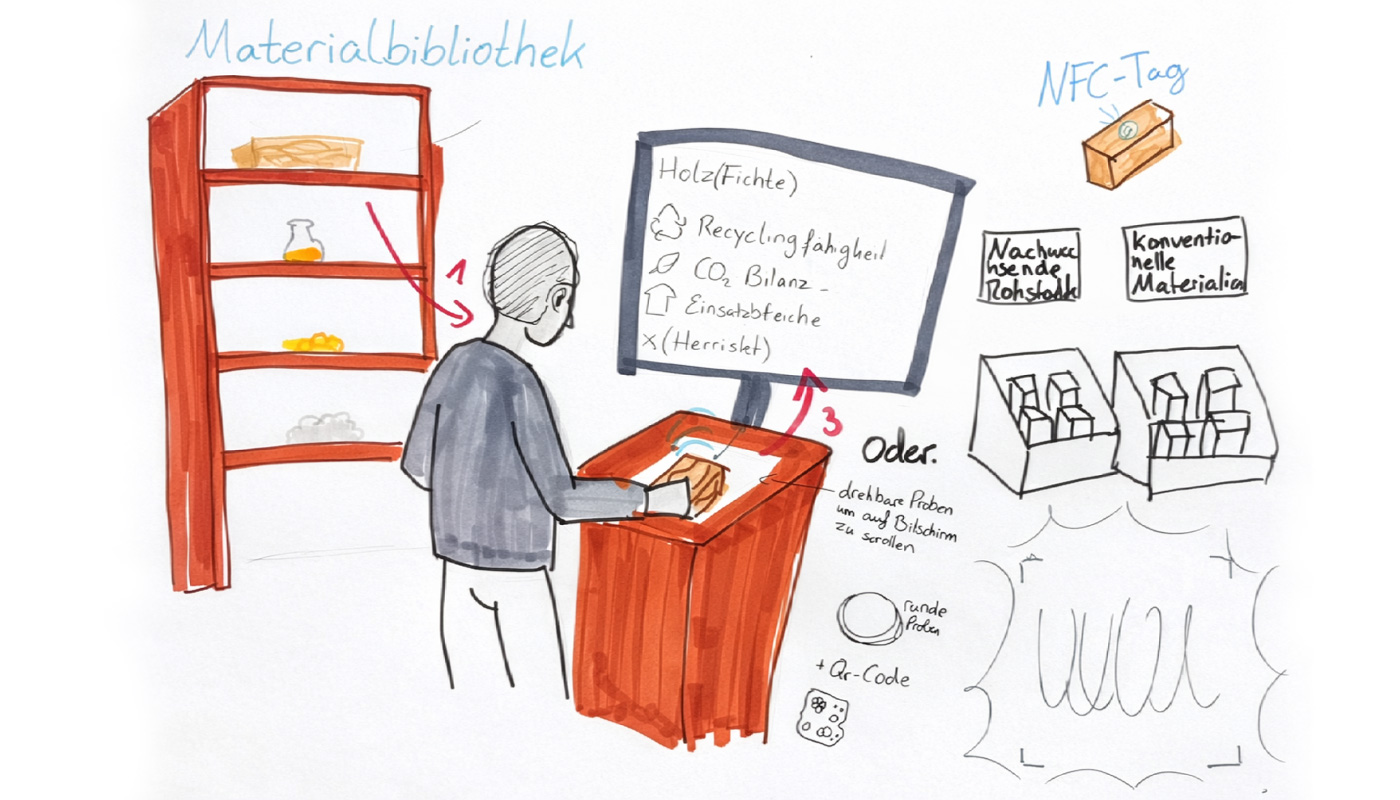 Materialbibliothek
NFC-Tag
Holz(Fichte)
Recyclingfähigkeit
CO₂ Bilanz -
x (
1
3
Nachwac
hsende
Rohstoffe
Konventio-
nelle
Materialien
Oder.
drehbare Proben
um auf Bilschirm
zu scrollen
runde
Proben
+ Qr-Code